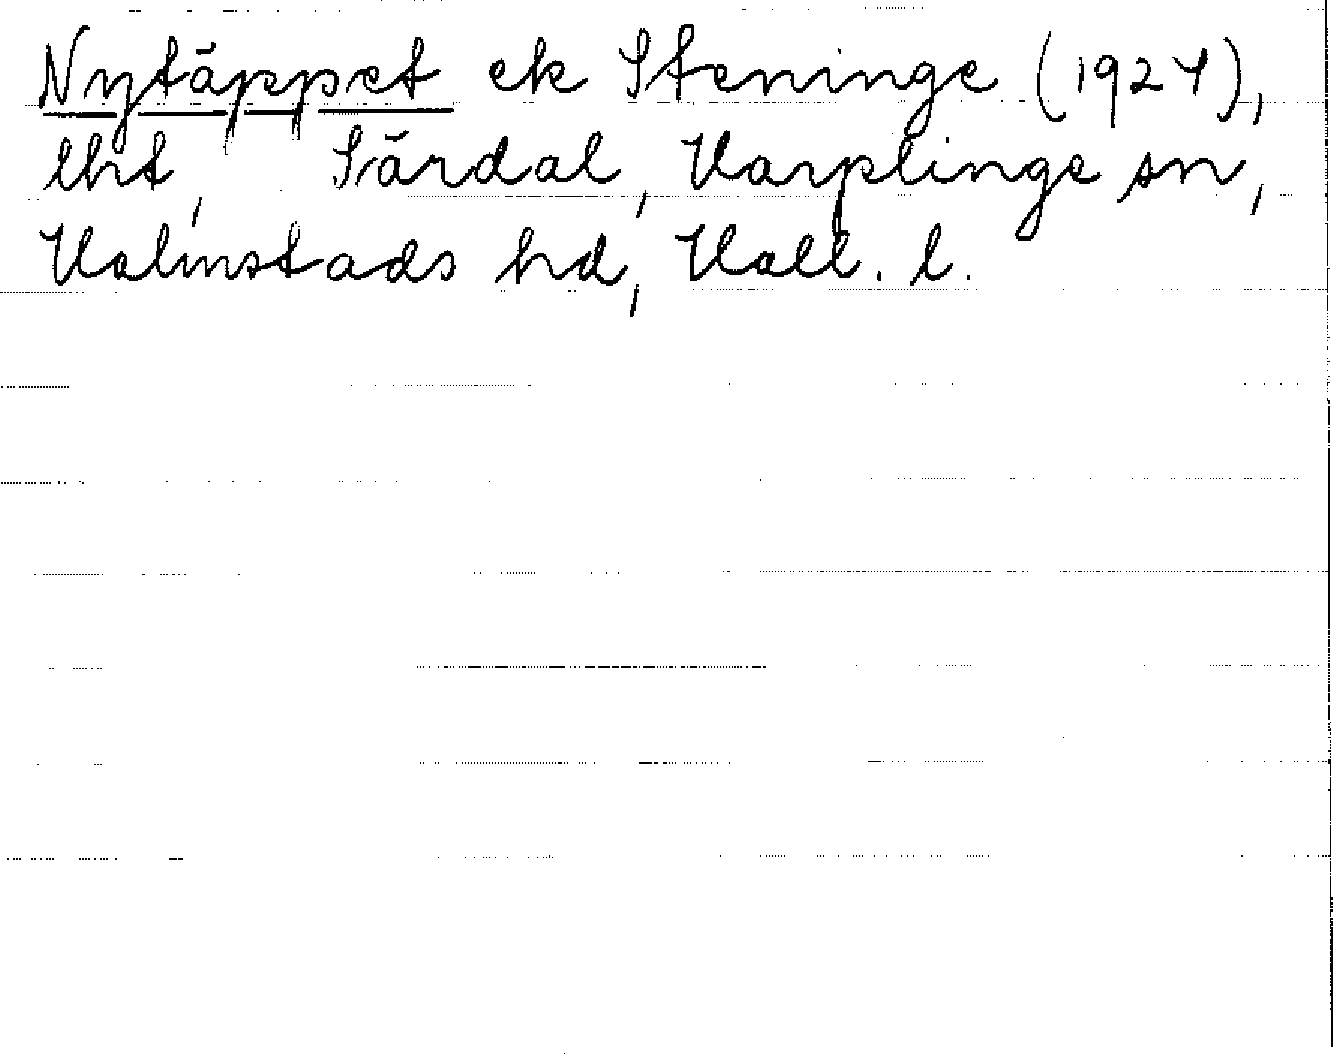 Nytäppet ek Steninge (1927),
lht, Särdal, Harplinge sn,
Halmstads hd, Hall. l.